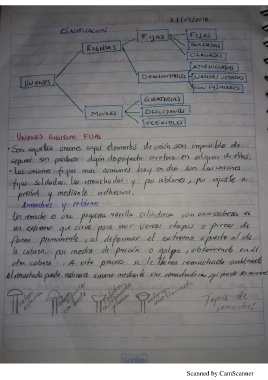 27/09/2018
CLASIFICACION
FIJAS
FIJAS
SOLDADAS
RIGIDAS
CLAVADAS
ATORNILLADAS
DESMONTABLES
UNIONES
CON PASADORES
GIRATORIAS
MOVILES
DESLIZANTES
FLEXIBLES
UNIONES RIGIDAS FIJAS
· Son aquellas uniones cuyos elementos de unión son imposible de
separar sin producir algún desperfecto o rotura en alguno de ellos.
· Las uniones fijas mas comunes hoy en dia son las uniones
fijas soldadas, las remachadas y por roblones, por ajuste a
presión y mediante adhesivos.
Remaches y roblones
Un remache es una pequeña varilla cilíndrica con una cabeza en
un extremo que sirve para unir varias chapas o piezas de
forma permanente, al deformar el extremo opuesto al de
la cabeza, por medio de presión o golpe, obteniendo así
otra cabeza. A este proceso se le llama remachado
El remachado puede realizarse a mano mediante una remachadora que puede ser manual
Tipos de
remaches
Scribe
Scanned by CamScanner